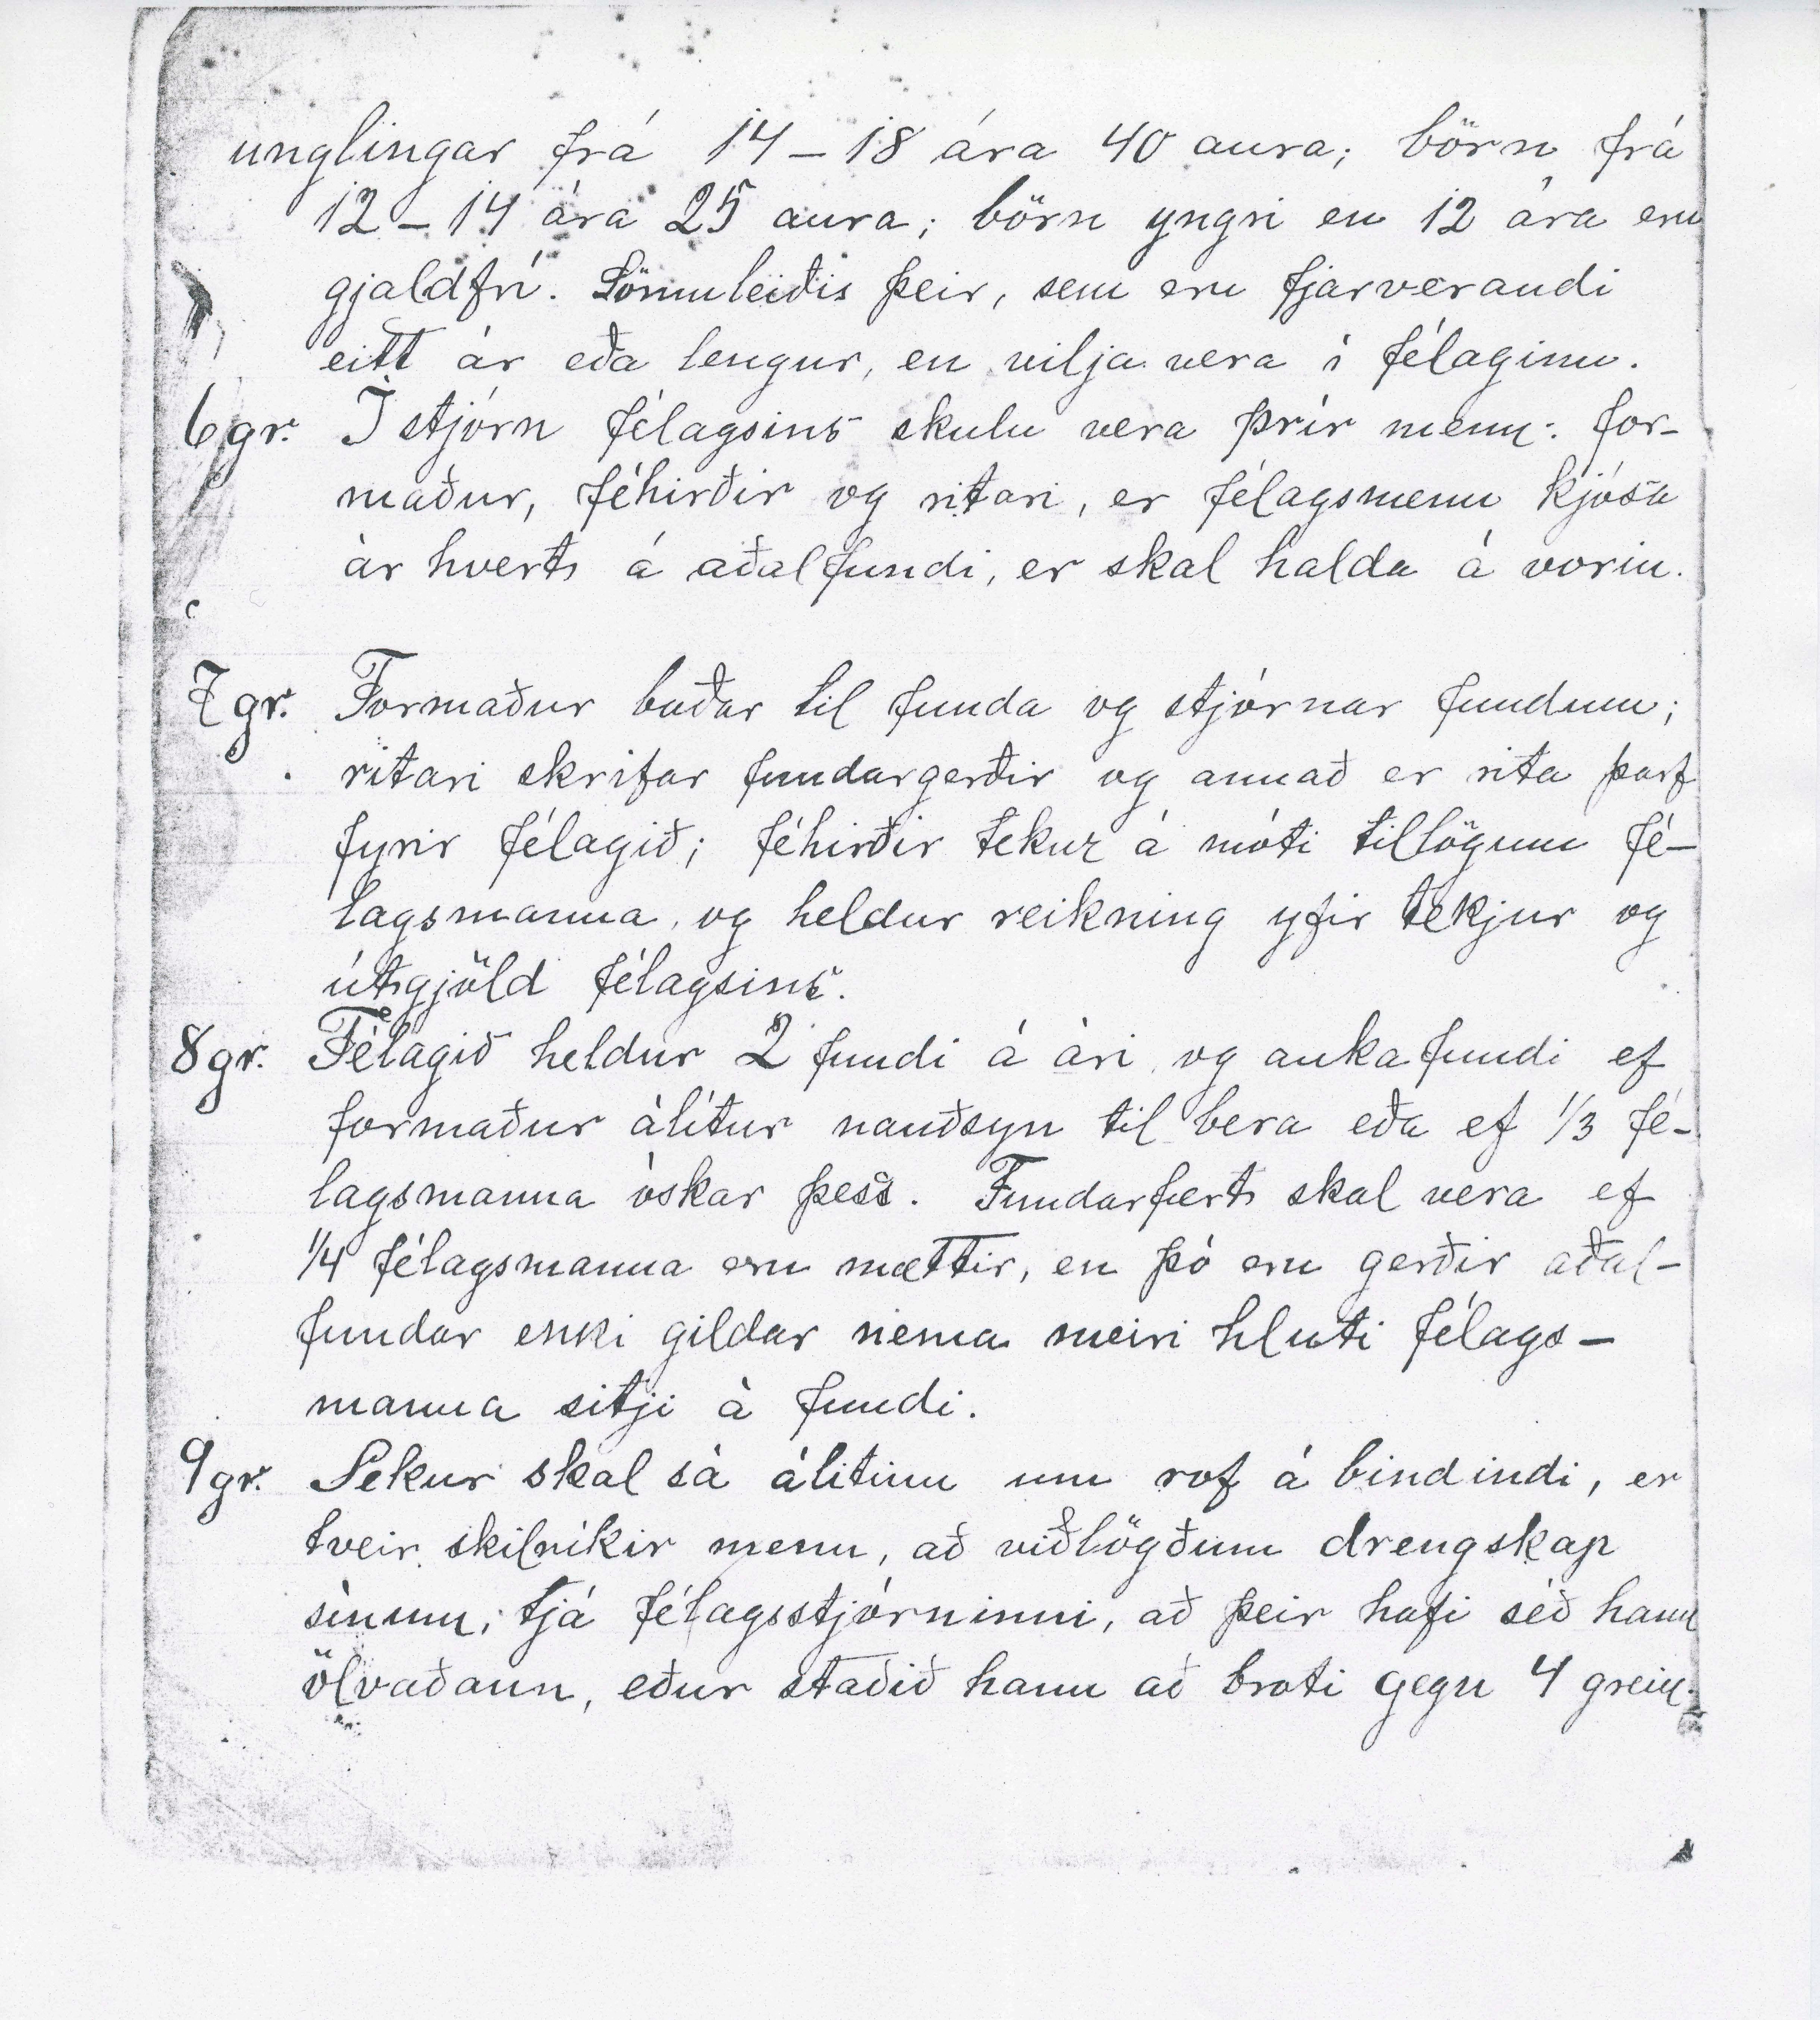 unglingar frá 14–18 ára 40 aura; börn frá
12–14 ára 25 aura; börn yngri en 12 ára eru
gjaldfrí. Sömuleiðis þeir, sem eru fjarverandi
eitt ár eða lengur, en vilja vera í félaginu.
6 gr. Í stjórn félagsins skulu vera þrír menn: for-
maður, féhirðir og ritari, er félagsmenn kjósa
ár hvert á aðalfundi, er skal halda á vorin.
7 gr. Formaður boðar til funda og stjórnar fundum;
ritari skrifar fundargerðir og annað er rita þarf
fyrir félagið; féhirðir tekur á móti tillögum fé-
lagsmanna, og heldur reikning yfir tekjur og
útgjöld félagsins.
8 gr. Félagið heldur 2 fundi á ári, og aukafundi ef
formaður álítur nauðsyn til bera eða ef 1/3 fé-
lagsmanna óskar þess. Fundarfært skal vera ef
1/4 félagsmanna eru mættir, en þó eru gerðir aðal-
fundar ekki gildar nema meiri hluti félags-
manna sitji á fundi.
9 gr. Sekur skal sá álitinn um rof á bindindi, er
tveir skilríkir menn, að viðlögðum drengskap
sínum, tjá félagsstjórninni, að þeir hafi séð hann
ölvaðann, eður staðið hann að broti gegn 4 grein.